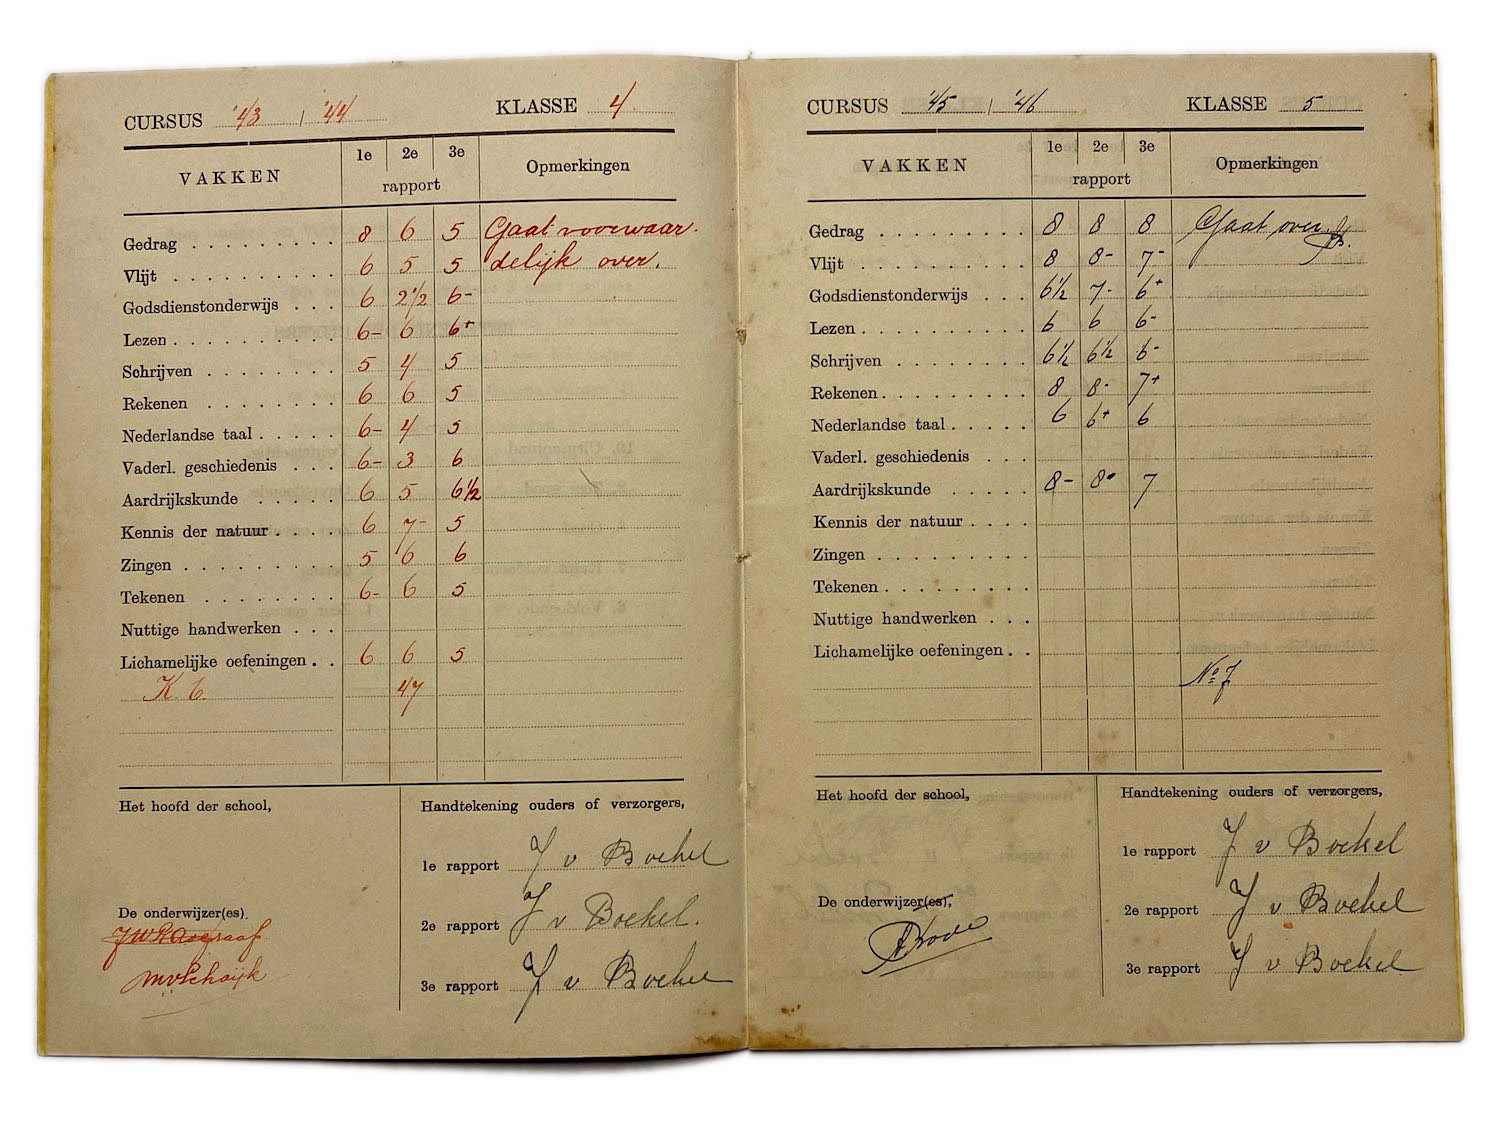 CURSUS '43 / '44 KLASSE 4
VAKKEN 1e 2e 3e Opmerkingen
rapport
Gedrag 8 6 5 Gaat voorwaar-
Vlijt 6 5 5 delijk over.
Godsdienstonderwijs 6 2 1/2 6-
Lezen 6- 6 6+
Schrijven 5 4 5
Rekenen 6 6 5
Nederlandse taal 6- 4 5
Vaderl. geschiedenis 6- 3 6
Aardrijkskunde 6 5 6 1/2
Kennis der natuur 6 7- 5
Zingen 5 6 6
Tekenen 6- 6 5
Nuttige handwerken
Lichamelijke oefeningen 6 6 5
K. 6. 47
Het hoofd der school,
Handtekening ouders of verzorgers,
1e rapport J v Boekel
2e rapport J v Boekel.
3e rapport J v Boekel
De onderwijzer(es).
MvSchaijk
CURSUS '45 / '46 KLASSE 5
VAKKEN 1e 2e 3e Opmerkingen
rapport
Gedrag 8 8 8 Gaat over.
Vlijt 8 8- 7-
Godsdienstonderwijs 6 1/2 7- 6+
Lezen 6 6 6-
Schrijven 6 1/2 6 1/2 6-
Rekenen 8 8- 7+
Nederlandse taal 6 6+ 6
Vaderl. geschiedenis
Aardrijkskunde 8- 8- 7
Kennis der natuur
Zingen
Tekenen
Nuttige handwerken
Lichamelijke oefeningen
No 7
Het hoofd der school,
Handtekening ouders of verzorgers,
1e rapport J v Boekel
2e rapport J v Boekel
3e rapport J v Boekel
De onderwijzer(es),